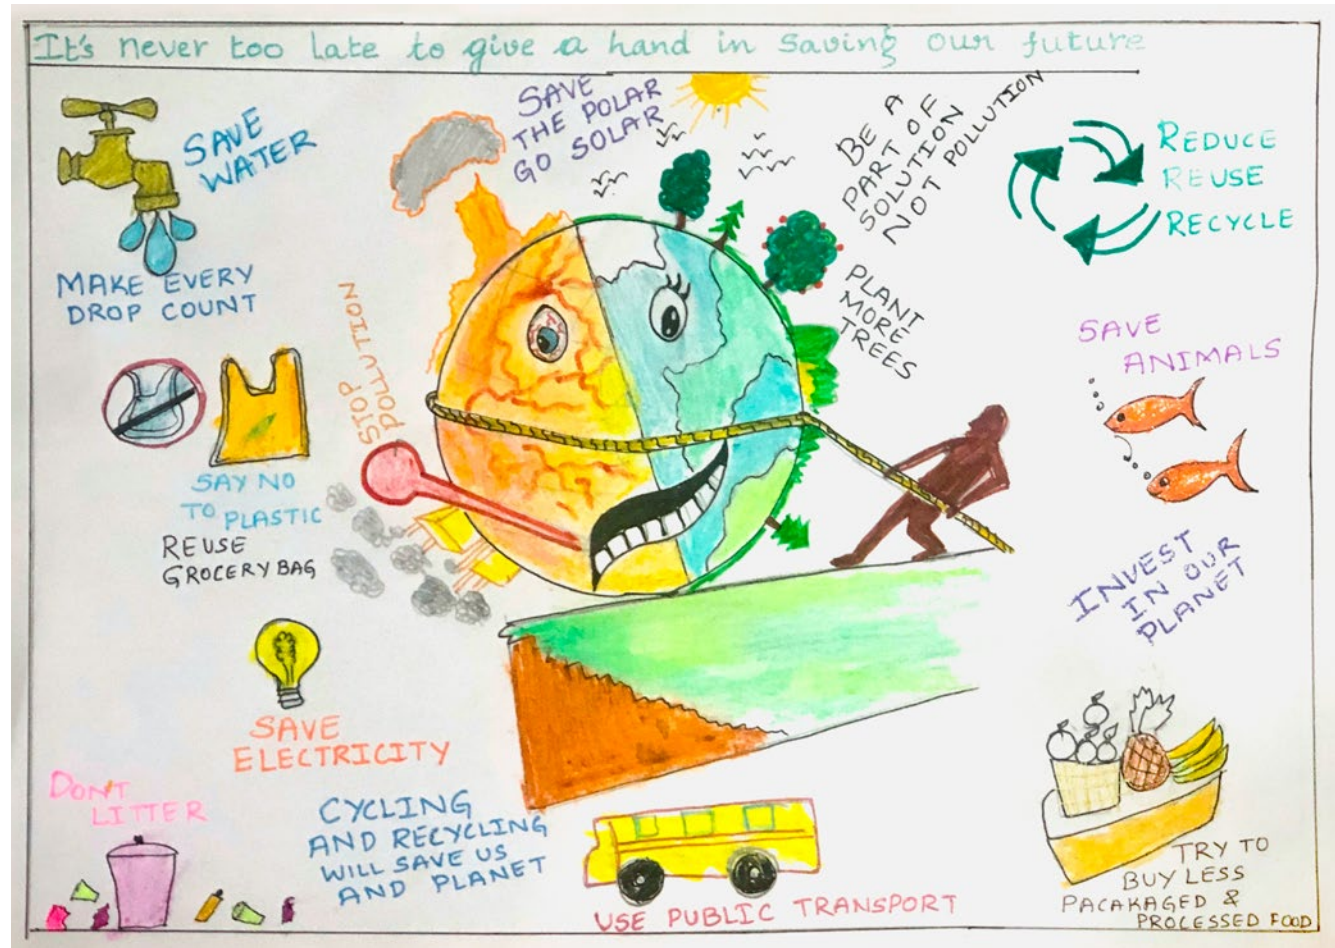 It's never too late to give a hand in saving our future
SAVE
WATER
MAKE EVERY
DROP COUNT
SAVE
THE POLAR
GO SOLAR
BE A
PART OF
SOLUTION
NOT POLLUTION
REDUCE
REUSE
RECYCLE
STOP
POLLUTION
PLANT
MORE
TREES
SAVE
ANIMALS
SAY NO
TO PLASTIC
REUSE
GROCERY BAG
INVEST
IN OUR
PLANET
SAVE
ELECTRICITY
DON'T
LITTER
CYCLING
AND RECYCLING
WILL SAVE US
AND PLANET
USE PUBLIC TRANSPORT
TRY TO
BUY LESS
PACAKAGED &
PROCESSED FOOD